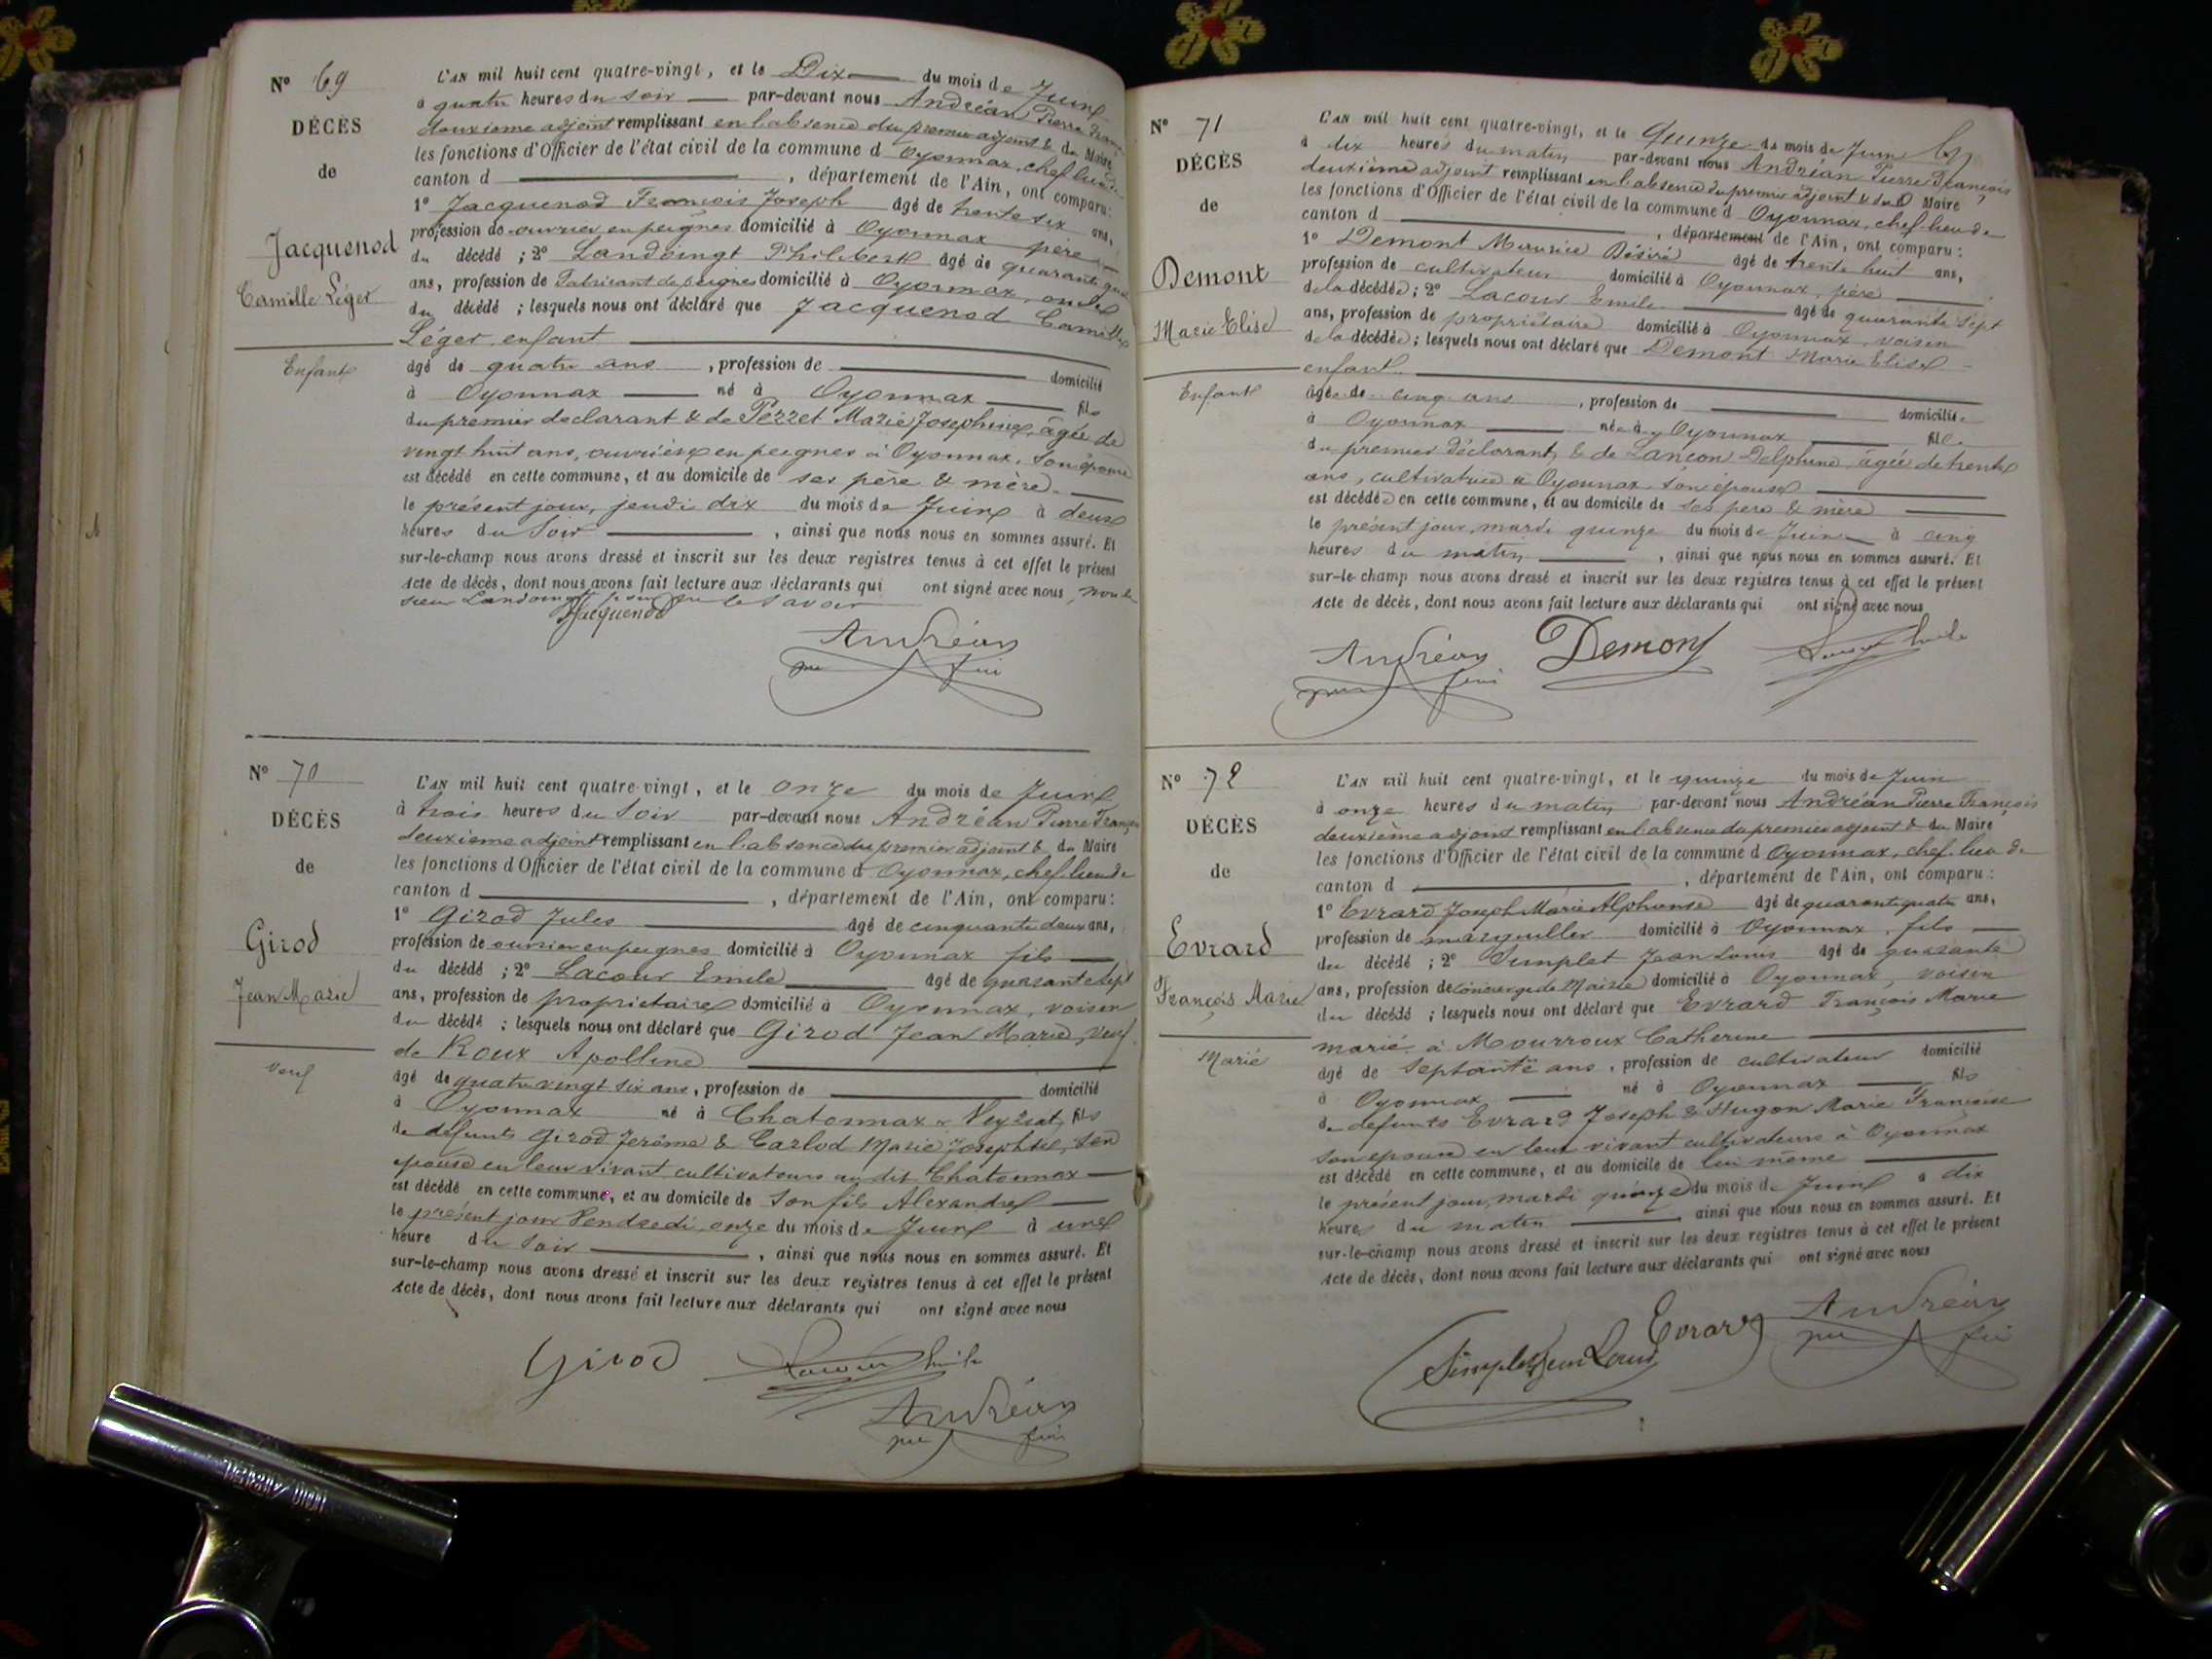 N° 69
DÉCÈS
de
Jacquenod
Camille Léger
Enfant
L'AN mil huit cent quatre-vingt, et le Dix du mois de Juin
à quatre heures du soir par-devant nous Andréan Pierre Franç
deuxième adjoint remplissant en l'absence du premier adjoint & du Maire
les fonctions d'Officier de l'état civil de la commune d Oyonnax, chef lieu de
canton d , département de l'Ain, ont comparu:
1° Jacquenod François Joseph âgé de trente six ans,
profession de ouvrier en peignes domicilié à Oyonnax père
du décédé ; 2° Landoingt Philibert âgé de quarante
ans, profession de Fabricant de peignes domicilié à Oyonnax, oncle
du décédé ; lesquels nous ont déclaré que Jacquenod Camille
Léger, enfant
âgé de quatre ans , profession de domicilié
à Oyonnax né à Oyonnax fils
du premier déclarant & de Perret Marie Josephine, âgée de
vingt huit ans, ouvrière en peignes à Oyonnax, son épouse
est décédé en cette commune, et au domicile de ses père & mère.
le présent jour, jeudi dix du mois de Juin à deux
heures du Soir , ainsi que nous nous en sommes assuré. Et
sur-le-champ nous avons dressé et inscrit sur les deux registres tenus à cet effet le présent
Acte de décès, dont nous avons fait lecture aux déclarants qui ont signé avec nous, non le
sieur Landoingt pour ne le savoir
Jacquenod
Andréan
N° 70
DÉCÈS
de
Girod
Jean Marie
Veuf
L'AN mil huit cent quatre-vingt, et le onze du mois de Juin
à trois heures du Soir par-devant nous Andréan Pierre François
deuxième adjoint remplissant en l'absence du premier adjoint & du Maire
les fonctions d'Officier de l'état civil de la commune d Oyonnax, chef lieu de
canton d , département de l'Ain, ont comparu:
1° Girod Jules âgé de cinquante deux ans,
profession de ouvrier en peignes domicilié à Oyonnax fils
du décédé ; 2° Lacour Emile âgé de quarante sept
ans, profession de propriétaire domicilié à Oyonnax, voisin
du décédé ; lesquels nous ont déclaré que Girod Jean Marie, veuf
de Roux Apolline
âgé de quatre vingt six ans, profession de domicilié
à Oyonnax né à Chatonnax Veyziat, fils
de défunts Girod Jerôme & Carlod Marie Josephte, son
épouse en leur vivant cultivateurs au dit Chatonnax
est décédé en cette commune, et au domicile de son fils Alexandre
le présent jour Vendredi onze du mois de Juin à une
heure du Soir , ainsi que nous nous en sommes assuré. Et
sur-le-champ nous avons dressé et inscrit sur les deux registres tenus à cet effet le présent
Acte de décès, dont nous avons fait lecture aux déclarants qui ont signé avec nous
Girod Lacour Emile
Andréan
N° 71
DÉCÈS
de
Demont
Marie Elise
Enfant
L'AN mil huit cent quatre-vingt, et le Quinze du mois de Juin
à dix heures du matin par-devant nous Andréan Pierre François
deuxième adjoint remplissant en l'absence du premier adjoint & du Maire
les fonctions d'Officier de l'état civil de la commune d Oyonnax, chef-lieu de
canton d , département de l'Ain, ont comparu:
1° Demont Maurice Désiré âgé de trente huit ans,
profession de cultivateur domicilié à Oyonnax, père
de la décédée ; 2° Lacour Emile âgé de quarante sept
ans, profession de propriétaire domicilié à Oyonnax, voisin
de la décédée ; lesquels nous ont déclaré que Demont Marie Elise
enfant
âgée de cinq ans , profession de domiciliée
à Oyonnax née à Oyonnax fille
du premier déclarant, & de Lançon Delphine âgée de trente
ans, cultivatrice à Oyonnax son épouse
est décédée en cette commune, et au domicile de ses père & mère
le présent jour, mardi quinze du mois de Juin à cinq
heures du matin , ainsi que nous nous en sommes assuré. Et
sur-le-champ nous avons dressé et inscrit sur les deux registres tenus à cet effet le présent
Acte de décès, dont nous avons fait lecture aux déclarants qui ont signé avec nous
Andréan Demont Lacour Emile
N° 72
DÉCÈS
de
Evrard
François Marie
Marié
L'AN mil huit cent quatre-vingt, et le quinze du mois de Juin
à onze heures du matin par-devant nous Andréan Pierre François
deuxième adjoint remplissant en l'absence du premier adjoint & du Maire
les fonctions d'Officier de l'état civil de la commune d Oyonnax, chef lieu de
canton d , département de l'Ain, ont comparu:
1° Evrard Joseph Marie Alphonse âgé de quarante quatre ans,
profession de marguiller domicilié à Oyonnax, fils
du décédé ; 2° Simplet Jean Louis âgé de quarante
ans, profession de concierge de Mairie domicilié à Oyonnax, voisin
du décédé ; lesquels nous ont déclaré que Evrard François Marie
marié à Mourroux Catherine
âgé de septante ans , profession de cultivateur domicilié
à Oyonnax né à Oyonnax fils
de défunts Evrard Joseph & Hugon Marie Françoise
son épouse en leur vivant cultivateurs à Oyonnax
est décédé en cette commune, et au domicile de lui même
le présent jour, mardi quinze du mois de Juin à dix
heures du matin ainsi que nous nous en sommes assuré. Et
sur-le-champ nous avons dressé et inscrit sur les deux registres tenus à cet effet le présent
Acte de décès, dont nous avons fait lecture aux déclarants qui ont signé avec nous
Simplet Jean Louis Evrard Andréan